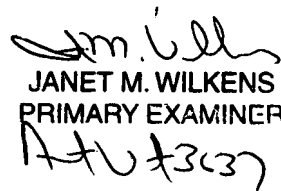 JANET M. WILKENS
PRIMARY EXAMINER
Art U #3637